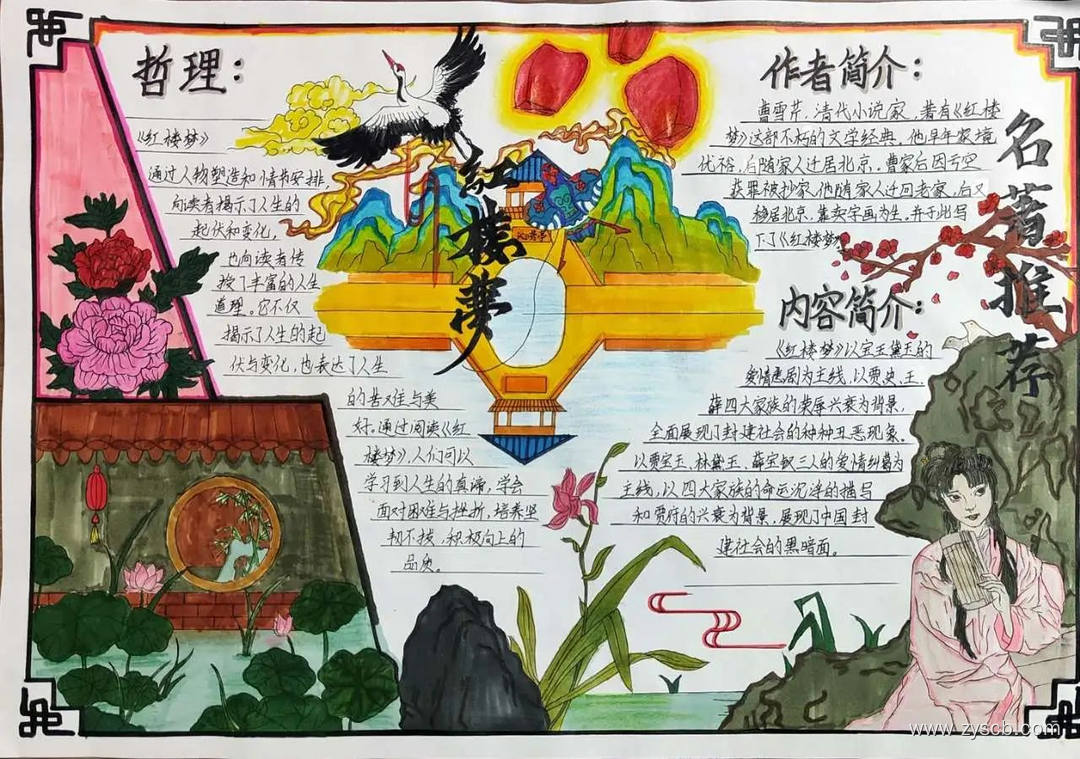 哲理：
《红楼梦》
通过人物塑造和情节安排，
向读者揭示了人生的
起伏和变化，
也向读者传
授了丰富的人生
道理。它不仅
揭示了人生的起
伏与变化，也表达了人生
的苦难与美
好。通过阅读《红
楼梦》，人们可以
学习到人生的真谛，学会
面对困难与挫折，培养坚
韧不拔，积极向上的
品质。
红楼梦
作者简介：
曹雪芹，清代小说家，著有《红楼
梦》这部不朽的文学经典，他早年家境
优裕，后随家人迁居北京。曹家后因亏空
获罪被抄家，他随家人迁回老家，后又
移居北京，靠卖字画为生，并于此写
下了《红楼梦》
内容简介：
《红楼梦》以宝玉黛玉的
爱情悲剧为主线，以贾、史、王、
薛四大家族的荣辱兴衰为背景，
全面展现了封建社会的种种丑恶现象。
以贾宝玉、林黛玉、薛宝钗三人的爱情纠葛为
主线，以四大家族的命运沉浮的描写
和贾府的兴衰为背景，展现了中国封
建社会的黑暗面。
名著推荐
www.zyscb.com